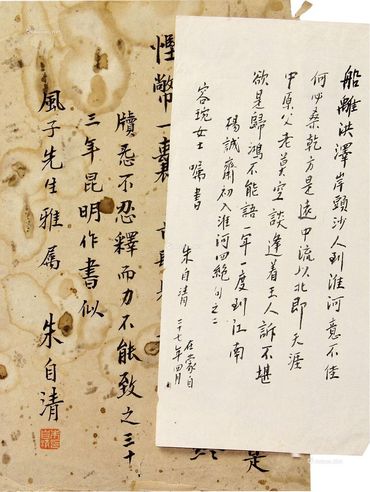 船離洪澤岸頭沙人到淮河意不佳
何必桑乾方是遠中流以北即天涯
中原父老莫空談逢着王人訴不堪
卻是歸鴻不能語一年一度到江南
楊誠齋初入淮河四絕句之二
容琬女士囑書
朱自清
在蒙自
二十七年四月
是
幣一囊
牘悉不忍釋而力不能致之三十
三年昆明作書似
風子先生雅屬 朱自清